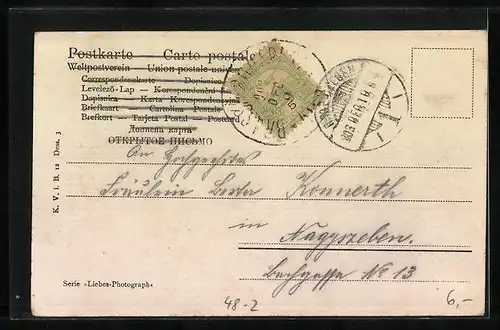 Postkarte — Carte postale
Weltpostverein — Union postale univer
Correspondenzkarte — Dopisnice
Levelező-Lap — Korespondenční
Dopisnica — Karta Korespondencyjna
Briefkaart — Cartolina Postale
Brefkort — Tarjeta Postal — Postcard
Дописна карта
ОТКРЫТОЕ ПИСЬМО
An Hochgeehrtes
Fräulein Berta Konnerth
in
Nagyszeben.
Bachgasse No 13
K. V. i. B. 12 Dess. 3
Serie »Liebes-Photograph«
48-2
6,-